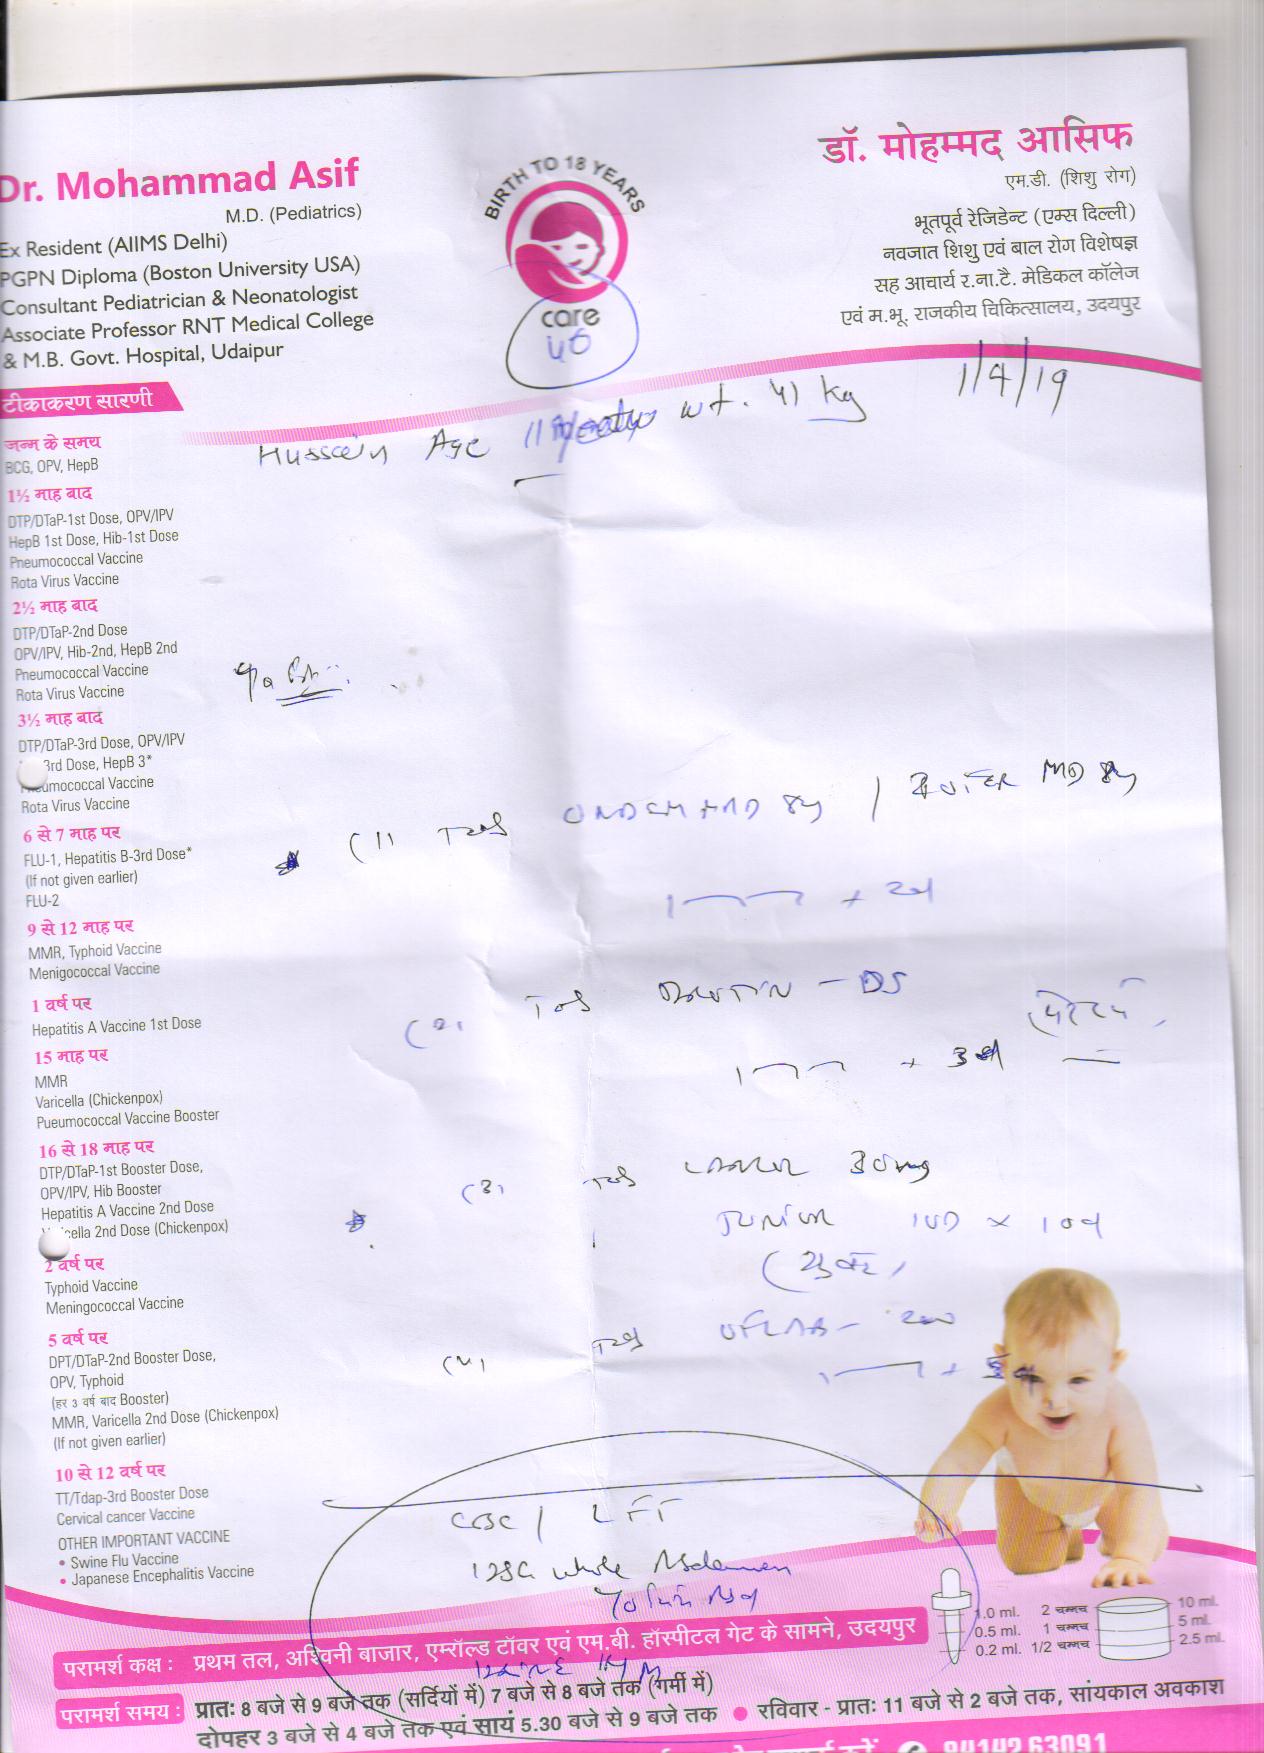 Dr. Mohammad Asif
M.D. (Pediatrics)
Ex Resident (AIIMS Delhi)
PGPN Diploma (Boston University USA)
Consultant Pediatrician & Neonatologist
Associate Professor RNT Medical College
& M.B. Govt. Hospital, Udaipur
BIRTH TO 18 YEARS
care
डॉ. मोहम्मद आसिफ
एम.डी. (शिशु रोग)
भूतपूर्व रेजिडेन्ट (एम्स दिल्ली)
नवजात शिशु एवं बाल रोग विशेषज्ञ
सह आचार्य र.ना.टै. मेडिकल कॉलेज
एवं म.भू. राजकीय चिकित्सालय, उदयपुर
1/4/19
Hussain Age 11 wt. 41 Kg
टीकाकरण सारणी
जन्म के समय
BCG, OPV, HepB
1½ माह बाद
DTP/DTaP-1st Dose, OPV/IPV
HepB 1st Dose, Hib-1st Dose
Pneumococcal Vaccine
Rota Virus Vaccine
2½ माह बाद
DTP/DTaP-2nd Dose
OPV/IPV, Hib-2nd, HepB 2nd
Pneumococcal Vaccine
Rota Virus Vaccine
3½ माह बाद
DTP/DTaP-3rd Dose, OPV/IPV
3rd Dose, HepB 3*
Pneumococcal Vaccine
Rota Virus Vaccine
6 से 7 माह पर
FLU-1, Hepatitis B-3rd Dose*
(If not given earlier)
FLU-2
9 से 12 माह पर
MMR, Typhoid Vaccine
Menigococcal Vaccine
1 वर्ष पर
Hepatitis A Vaccine 1st Dose
15 माह पर
MMR
Varicella (Chickenpox)
Pueumococcal Vaccine Booster
16 से 18 माह पर
DTP/DTaP-1st Booster Dose,
OPV/IPV, Hib Booster
Hepatitis A Vaccine 2nd Dose
Varicella 2nd Dose (Chickenpox)
2 वर्ष पर
Typhoid Vaccine
Meningococcal Vaccine
5 वर्ष पर
DPT/DTaP-2nd Booster Dose,
OPV, Typhoid
(हर 3 वर्ष बाद Booster)
MMR, Varicella 2nd Dose (Chickenpox)
(If not given earlier)
10 से 12 वर्ष पर
TT/Tdap-3rd Booster Dose
Cervical cancer Vaccine
OTHER IMPORTANT VACCINE
• Swine Flu Vaccine
• Japanese Encephalitis Vaccine
(1) Tab
(2) Tab - DS
(3) Tab 30mg
Junior 1OD x 10d
(4) Tab - 200
CBC / LFT
USG whole Abdomen
Urine R/M
1.0 ml. 2 चम्मच 10 ml.
0.5 ml. 1 चम्मच 5 ml.
0.2 ml. 1/2 चम्मच 2.5 ml.
परामर्श कक्ष : प्रथम तल, अश्विनी बाजार, एम्रॉल्ड टॉवर एवं एम.बी. हॉस्पीटल गेट के सामने, उदयपुर
परामर्श समय : प्रातः 8 बजे से 9 बजे तक (सर्दियों में) 7 बजे से 8 बजे तक (गर्मी में)
दोपहर 3 बजे से 4 बजे तक एवं सायं 5.30 बजे से 9 बजे तक ● रविवार - प्रातः 11 बजे से 2 बजे तक, सांयकाल अवकाश
84142 63091